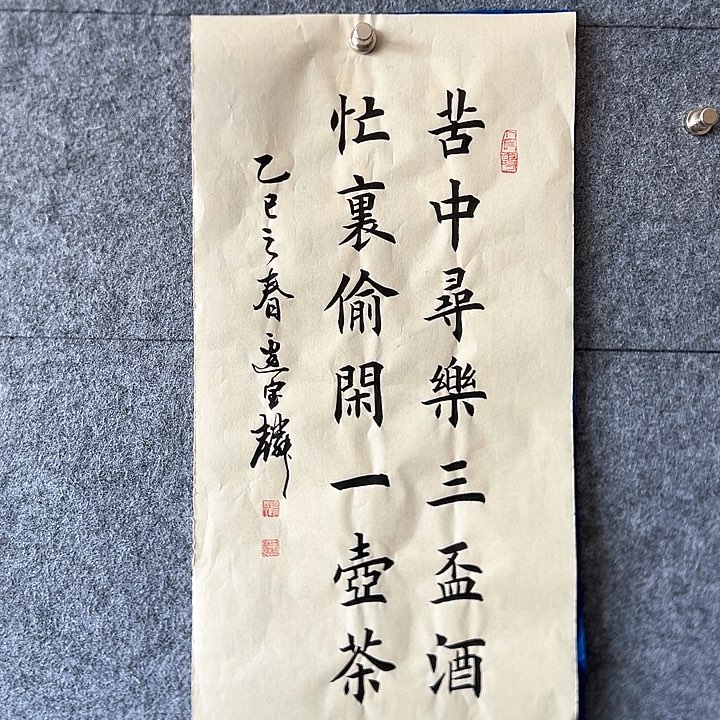 苦中尋樂三盃酒
忙裏偷閑一壺茶
乙巳之春邊宝麟